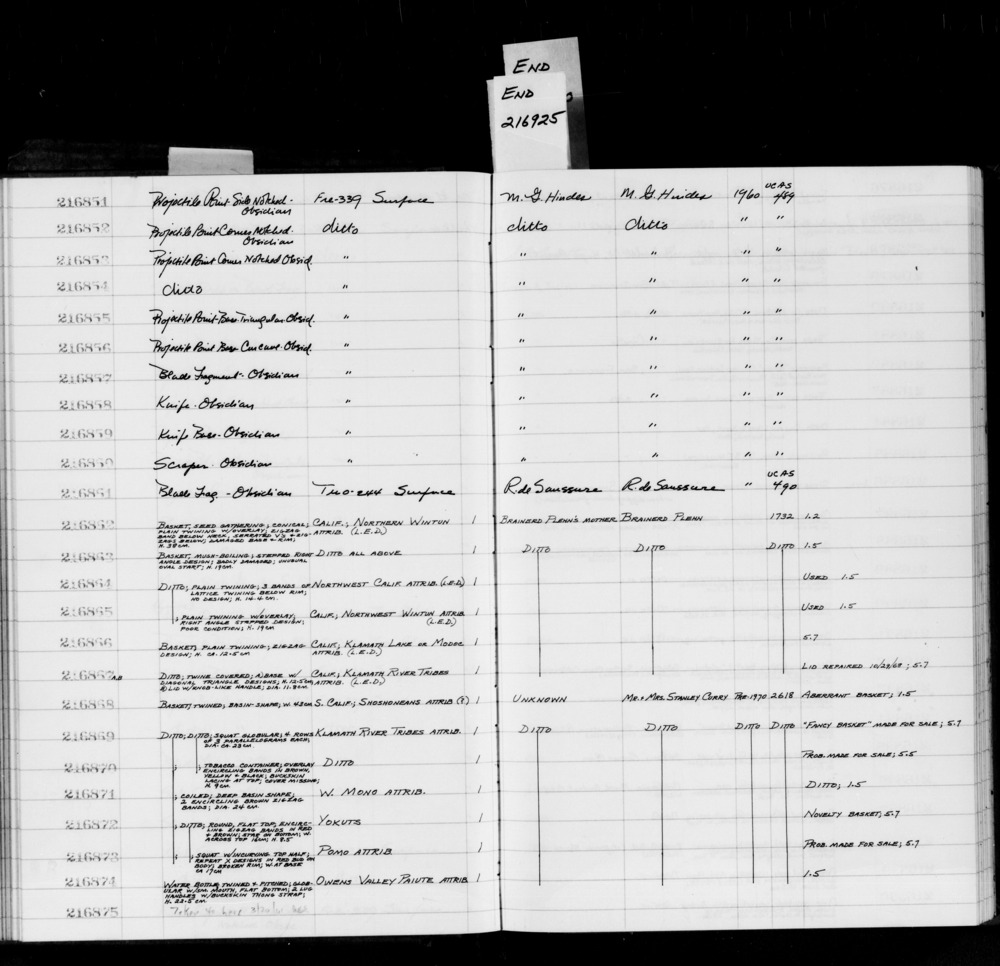 END
END
216925
UCAS
216851 Projectile Point Side Notched - Fre-339 Surface M. G. Hindes M. G. Hindes 1960 489
Obsidian
216852 Projectile Point Corner Notched - ditto ditto ditto " "
Obsidian
216853 Projectile Point Corner Notched Obsid. " " " " "
216854 ditto " " " " "
216855 Projectile Point-Base Triangular-Obsid. " " " " "
216856 Projectile Point Base Concave-Obsid. " " " " "
216857 Blade Fragment - Obsidian " " " " "
216858 Knife - Obsidian " " " " "
216859 Knife Base - Obsidian " " " " "
216860 Scraper - Obsidian " " " " "
UCAS
216861 Blade Frag. - Obsidian Tuo-244 Surface R. de Saussure R. de Saussure " 490
216862 BASKET, SEED GATHERING; CONICAL; CALIF.; NORTHERN WINTUN 1 BRAINERD PLEHN'S MOTHER BRAINERD PLEHN 1732 1.2
PLAIN TWINING W/OVERLAY; ZIGZAG ATTRIB. (L.E.D.)
BAND BELOW NECK, SERRATED V'S + ZIG-
ZAGS BELOW; DAMAGED BASE & RIM;
H. 38 CM.
216863 BASKET, MUSH-BOILING; STEPPED RIGHT DITTO ALL ABOVE 1 DITTO DITTO DITTO 1.5
ANGLE DESIGN; BADLY DAMAGED; UNUSUAL
OVAL START; H. 19 CM.
216864 DITTO; PLAIN TWINING; 3 BANDS OF NORTHWEST CALIF. ATTRIB. (L.E.D.) 1 USED 1.5
LATTICE TWINING BELOW RIM;
NO DESIGN; H. 14.4 CM.
216865 ; PLAIN TWINING W/OVERLAY; CALIF.; NORTHWEST WINTUN ATTRIB. 1 USED 1.5
RIGHT ANGLE STEPPED DESIGN; (L.E.D.)
POOR CONDITION; H. 19 CM
216866 BASKET; PLAIN TWINING; ZIGZAG CALIF.; KLAMATH LAKE OR MODOC 1 5.7
DESIGN; H. CA. 12.5 CM ATTRIB. (L.E.D.)
216867AB DITTO; TWINE COVERED; A) BASE W/ CALIF.; KLAMATH RIVER TRIBES 1 LID REPAIRED 10/29/68; 5.7
DIAGONAL TRIANGLE DESIGNS; H. 12.5 CM; ATTRIB. (L.E.D.)
B) LID W/KNOB-LIKE HANDLE; DIA. 11.8 CM.
216868 BASKET; TWINED; BASIN-SHAPE; W. 43 CM S. CALIF.; SHOSHONEANS ATTRIB (?) 1 UNKNOWN MR. & MRS. STANLEY CURRY PRE-1970 2618 ABERRANT BASKET; 1.5
216869 DITTO; DITTO; SQUAT GLOBULAR; 4 ROWS KLAMATH RIVER TRIBES ATTRIB. 1 DITTO DITTO DITTO DITTO "FANCY BASKET" MADE FOR SALE; 5.7
OF 3 PARALLELOGRAMS EACH;
DIA. CA. 23 CM.
216870 ; ; TOBACCO CONTAINER; OVERLAY DITTO 1 PROB. MADE FOR SALE; 5.5
ENCIRCLING BANDS IN BROWN,
YELLOW & BLACK; BUCKSKIN
LACING AT TOP; COVER MISSING;
H. 9 CM.
216871 ; COILED; DEEP BASIN SHAPE; W. MONO ATTRIB. 1 DITTO; 1.5
2 ENCIRCLING BROWN ZIGZAG
BANDS; DIA. 24 CM
216872 ; DITTO; ROUND, FLAT TOP; ENCIRC- YOKUTS 1 NOVELTY BASKET; 5.7
LING ZIGZAG BANDS IN RED
& BROWN; STAR ON BOTTOM; W.
ACROSS TOP 16 CM; H. 8.5
216873 ; ; SQUAT W/INCURVING TOP HALF; POMO ATTRIB 1 PROB. MADE FOR SALE; 5.7
REPEAT X DESIGNS IN RED BUD ON
BODY; BROKEN RIM; W. AT BASE
CA 17 CM
216874 WATER BOTTLE; TWINED & PITCHED; GLOB- OWENS VALLEY PAIUTE ATTRIB. 1 1.5
ULAR W/SM. MOUTH, FLAT BOTTOM; 2 LUG
HANDLES W/BUCKSKIN THONG STRAP;
H. 22.5 CM.
216875